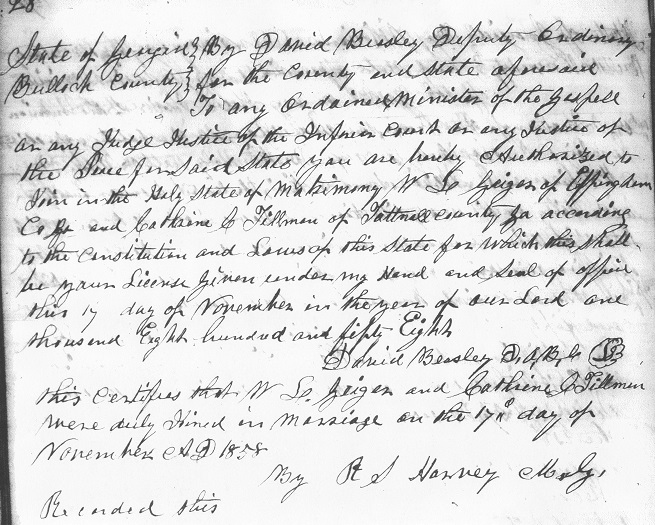 28
State of Georgia } By David Beasley Deputy Ordinary
Bulloch County } for the County and State aforesaid
To any Ordained Minister of the Gospell
or any Judge Justice of the Inferior Court or any Justice of
the Peace for said State you are hereby Authorized to
Join in the Holy State of Matrimony W L Geiger of Effingham
Co Ga and Cathrine C Tillman of Tattnall County Ga according
to the Constitution and Laws of this State for which this shall
be your License Given under my Hand and Seal of office
this 17 day of November in the year of our Lord one
thousand Eight hundred and fifty Eight
David Beasley D, O, B, C
this Certifies that W L, Geiger and Cathrine C Tillman
were duly Joined in Marriage on the 17 day of
November AD 1858
By R S Harvey M, G,
Recorded this